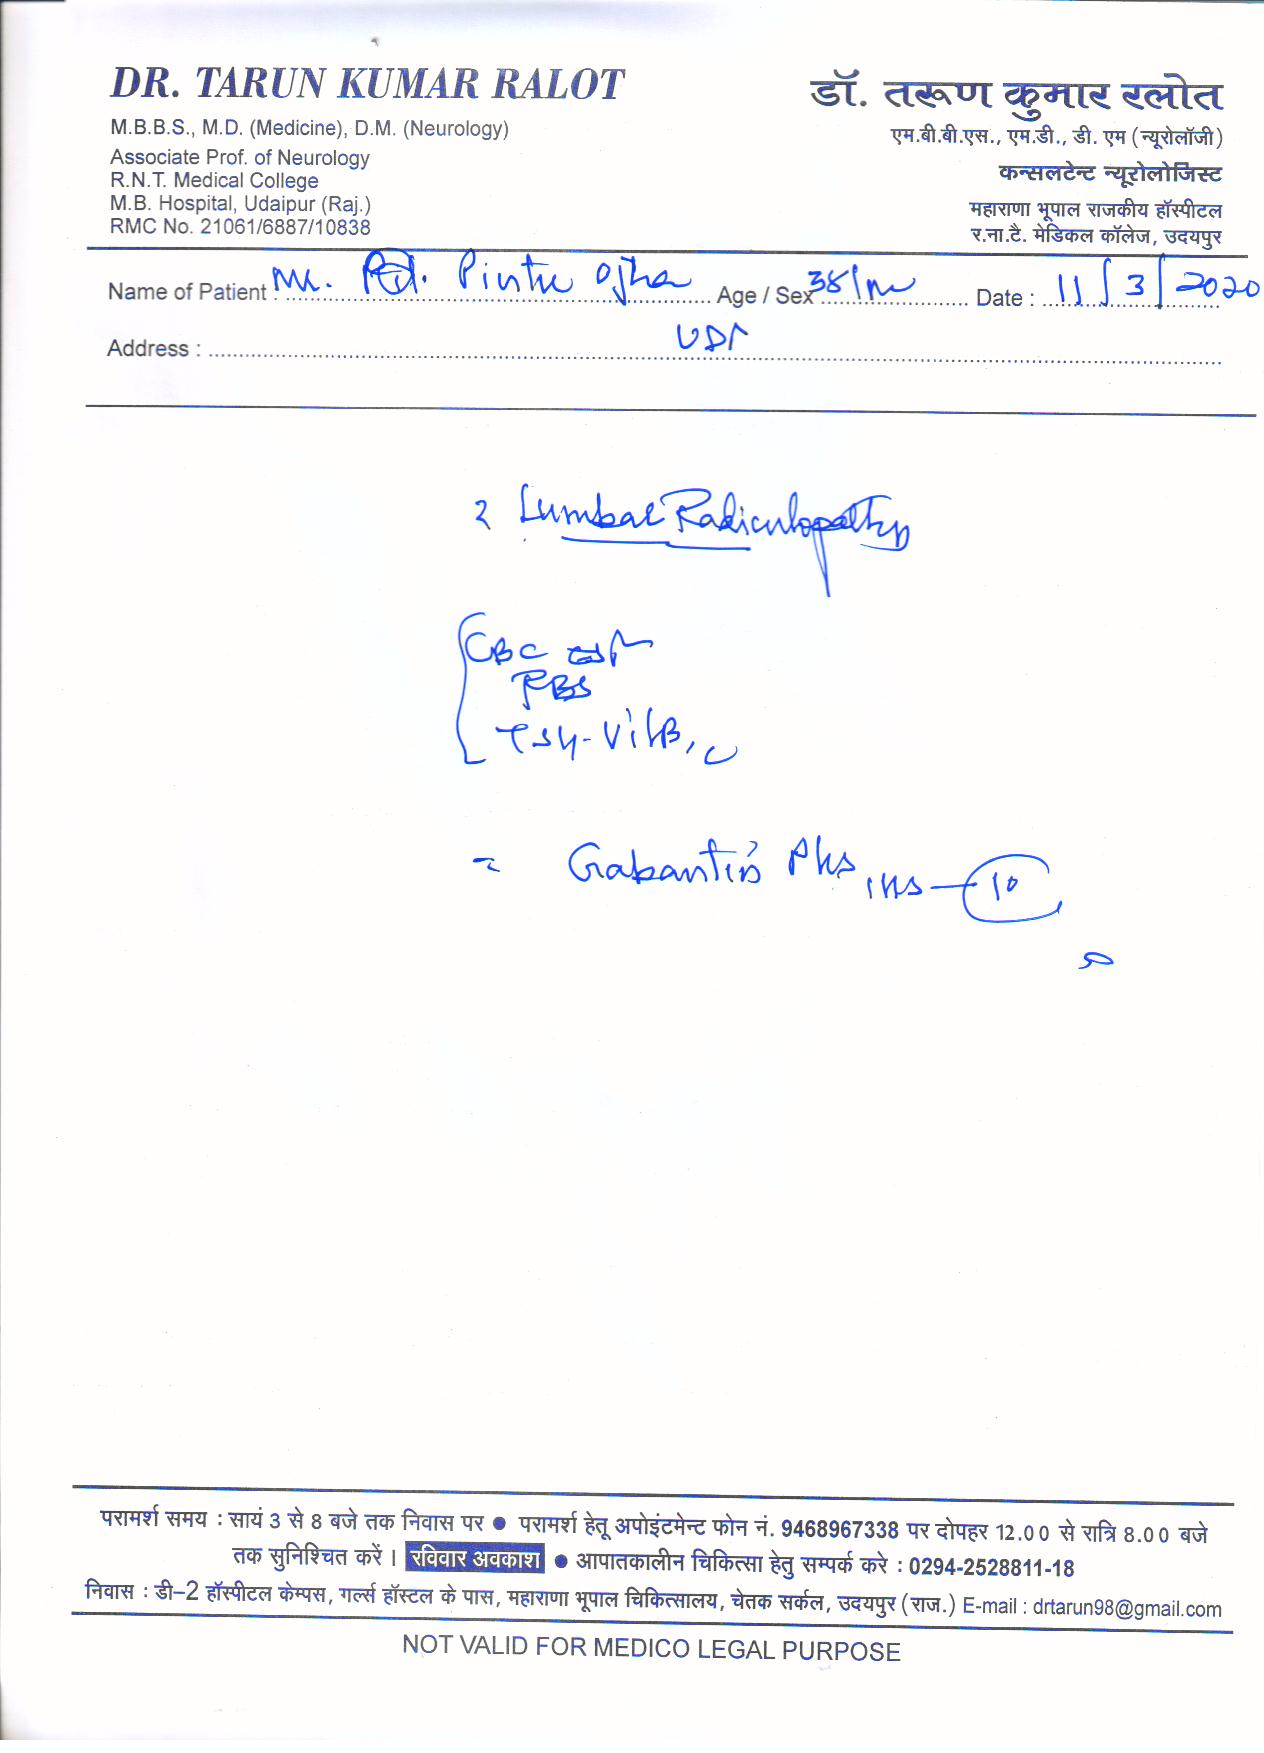 DR. TARUN KUMAR RALOT
M.B.B.S., M.D. (Medicine), D.M. (Neurology)
Associate Prof. of Neurology
R.N.T. Medical College
M.B. Hospital, Udaipur (Raj.)
RMC No. 21061/6887/10838
डॉ. तरूण कुमार रलोत
एम.बी.बी.एस., एम.डी., डी. एम (न्यूरोलॉजी)
कन्सलटेन्ट न्यूरोलोजिस्ट
महाराणा भूपाल राजकीय हॉस्पीटल
र.ना.टै. मेडिकल कॉलेज, उदयपुर
Name of Patient : Mr. Pintu Ojha Age / Sex 38/m Date : 11/3/2020
Address : UDR
? Lumbar Radiculopathy
CBC ESR
RBS
TSH - Vit B12
Gabantin Plus 1HS - 10
परामर्श समय : सायं 3 से 8 बजे तक निवास पर ● परामर्श हेतू अपोइंटमेन्ट फोन नं. 9468967338 पर दोपहर 12.00 से रात्रि 8.00 बजे
तक सुनिश्चित करें । रविवार अवकाश ● आपातकालीन चिकित्सा हेतु सम्पर्क करे : 0294-2528811-18
निवास : डी-2 हॉस्पीटल केम्पस, गर्ल्स हॉस्टल के पास, महाराणा भूपाल चिकित्सालय, चेतक सर्कल, उदयपुर (राज.) E-mail : drtarun98@gmail.com
NOT VALID FOR MEDICO LEGAL PURPOSE